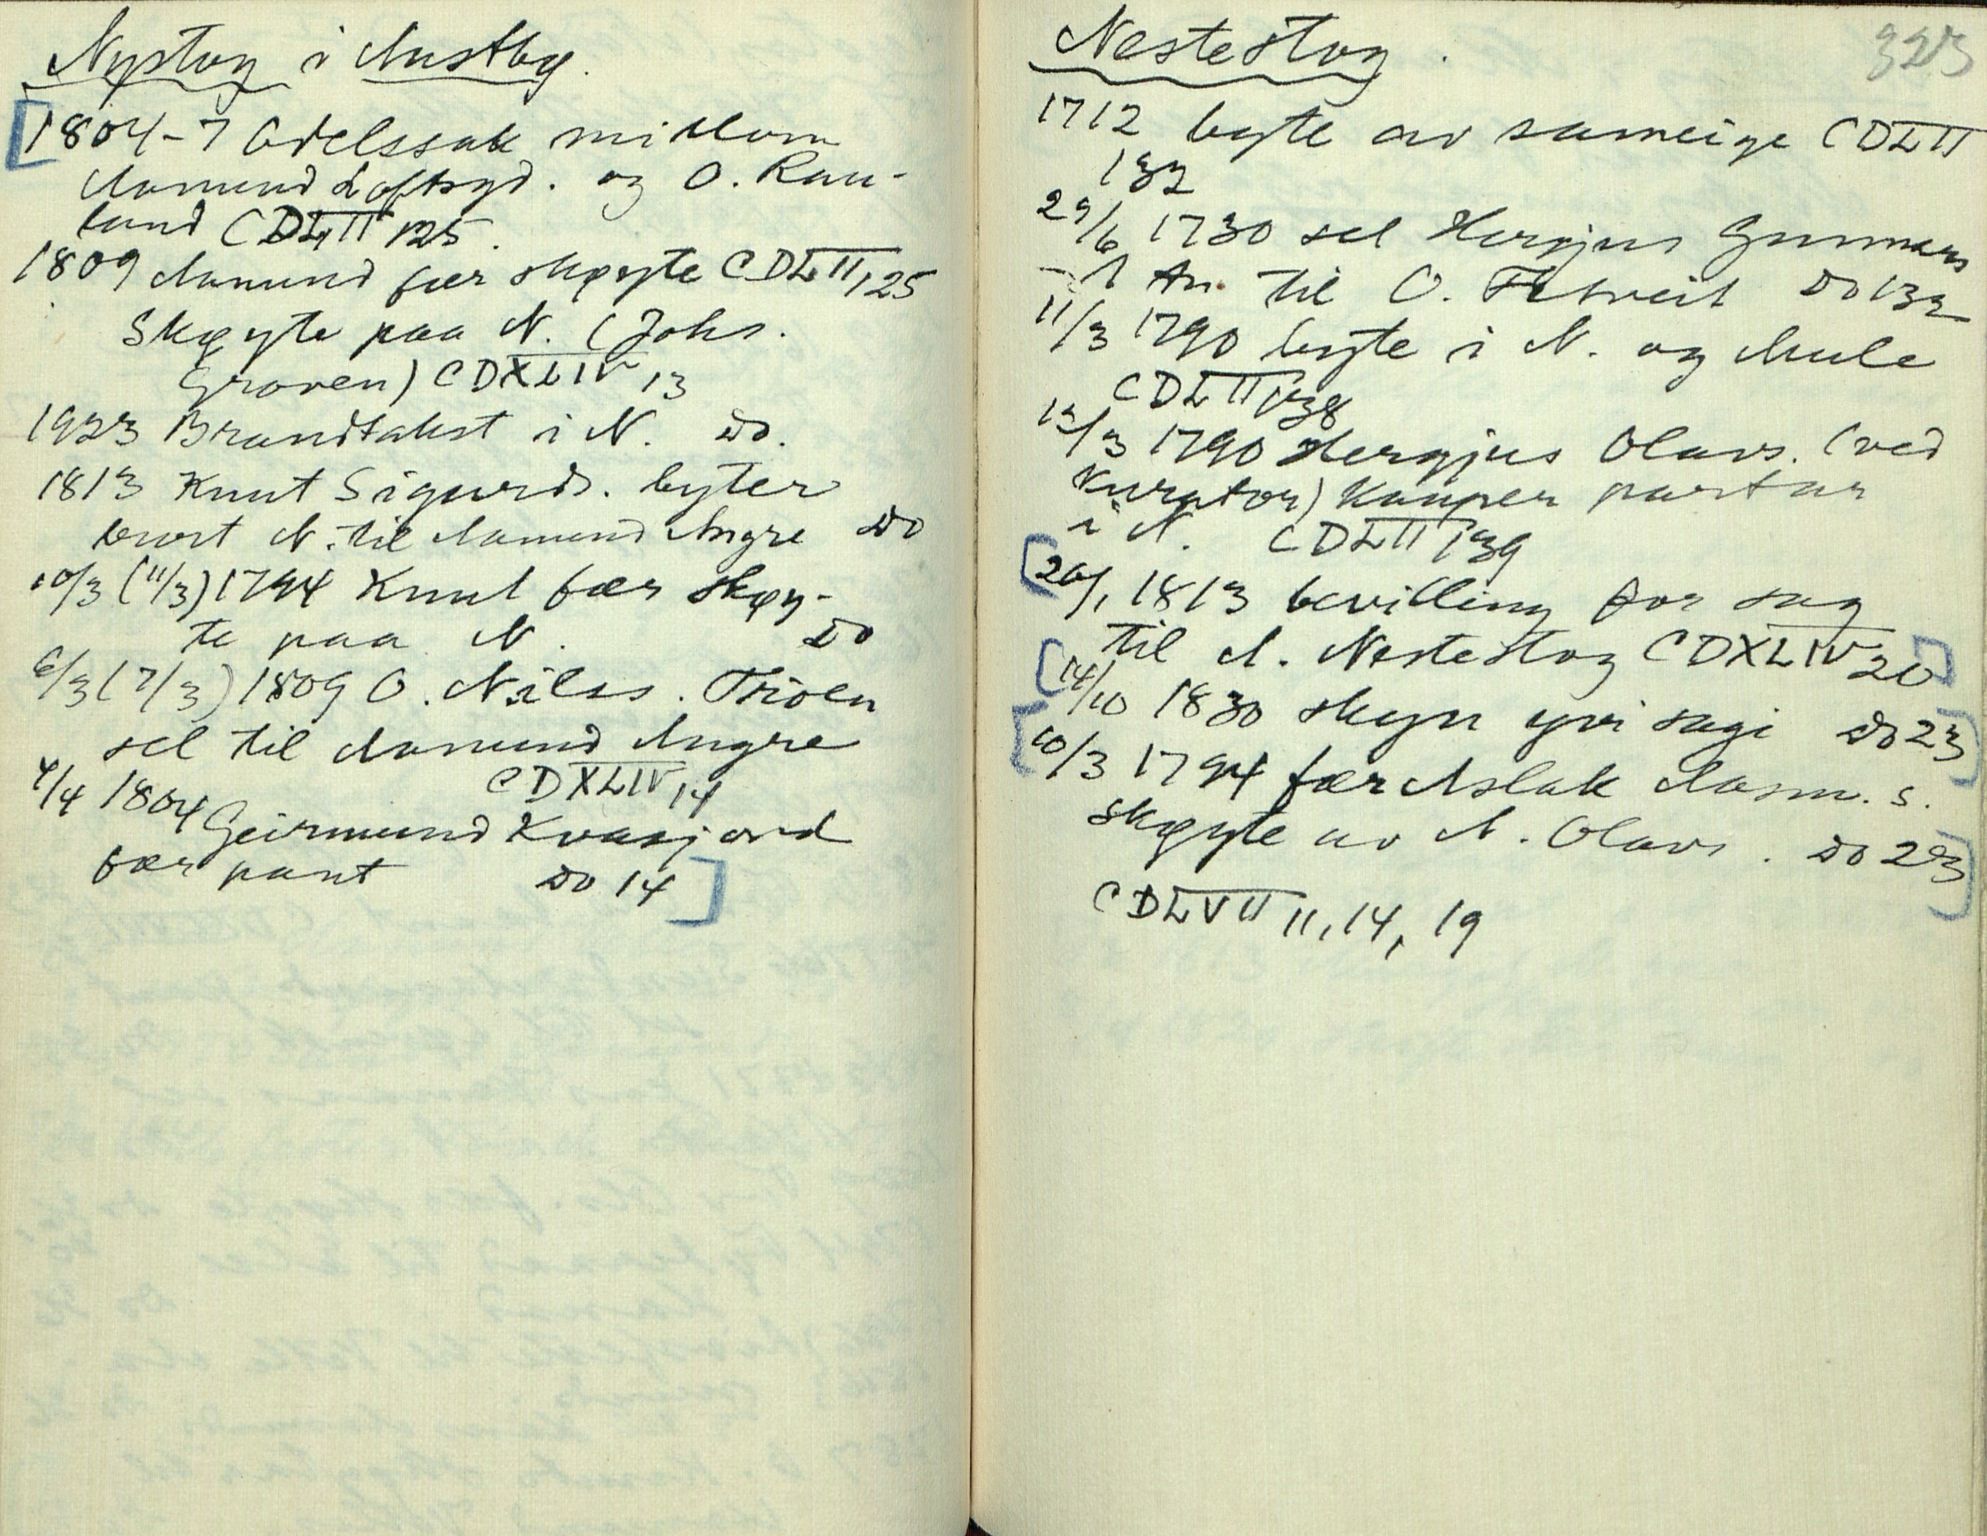 Nystog i Austbø.
[1804-7 Odelssak millom
Aamund Loftsgd. og O. Rau-
land CDLII 125.
1809 Aamund fær skøyte CDLII, 25
Skøyte paa N. (Johs.
Groven) CDXLIV, 13
1923 Brandtakst i N. Do.
1813 Knut Sigurds. byter
burt N. til Aamund Augre Do
10/3 (11/3) 1794 Knut fær skøy-
te paa N. Do
6/3 (7/3) 1809 O. Nilss. Troen
sel til Aamund Augre
CDXLIV, 14
4/4 1804 Geirmund Kvasjord
fær pant Do 14]
323
Nestestog.
1712 byte av sameige CDLII
132
29/6 1730 sel Hergjus Gunnars
til O. Do 132
11/3 1790 byte i N. og Aule
CDLII 138
12/3 1790 Hergjus Olavs. (ved
Kurator) kauper partar
i N. CDLII 139
[20/1 1813 bevilling for sag
til A. Nestestog CDXLIV 20]
[14/10 1830 skyn yvi sagi Do 23]
[10/3 1794 fær Aslak Aasm. s.
skøyte av N. Olavs. Do 23]
CDLVII 11, 14, 19